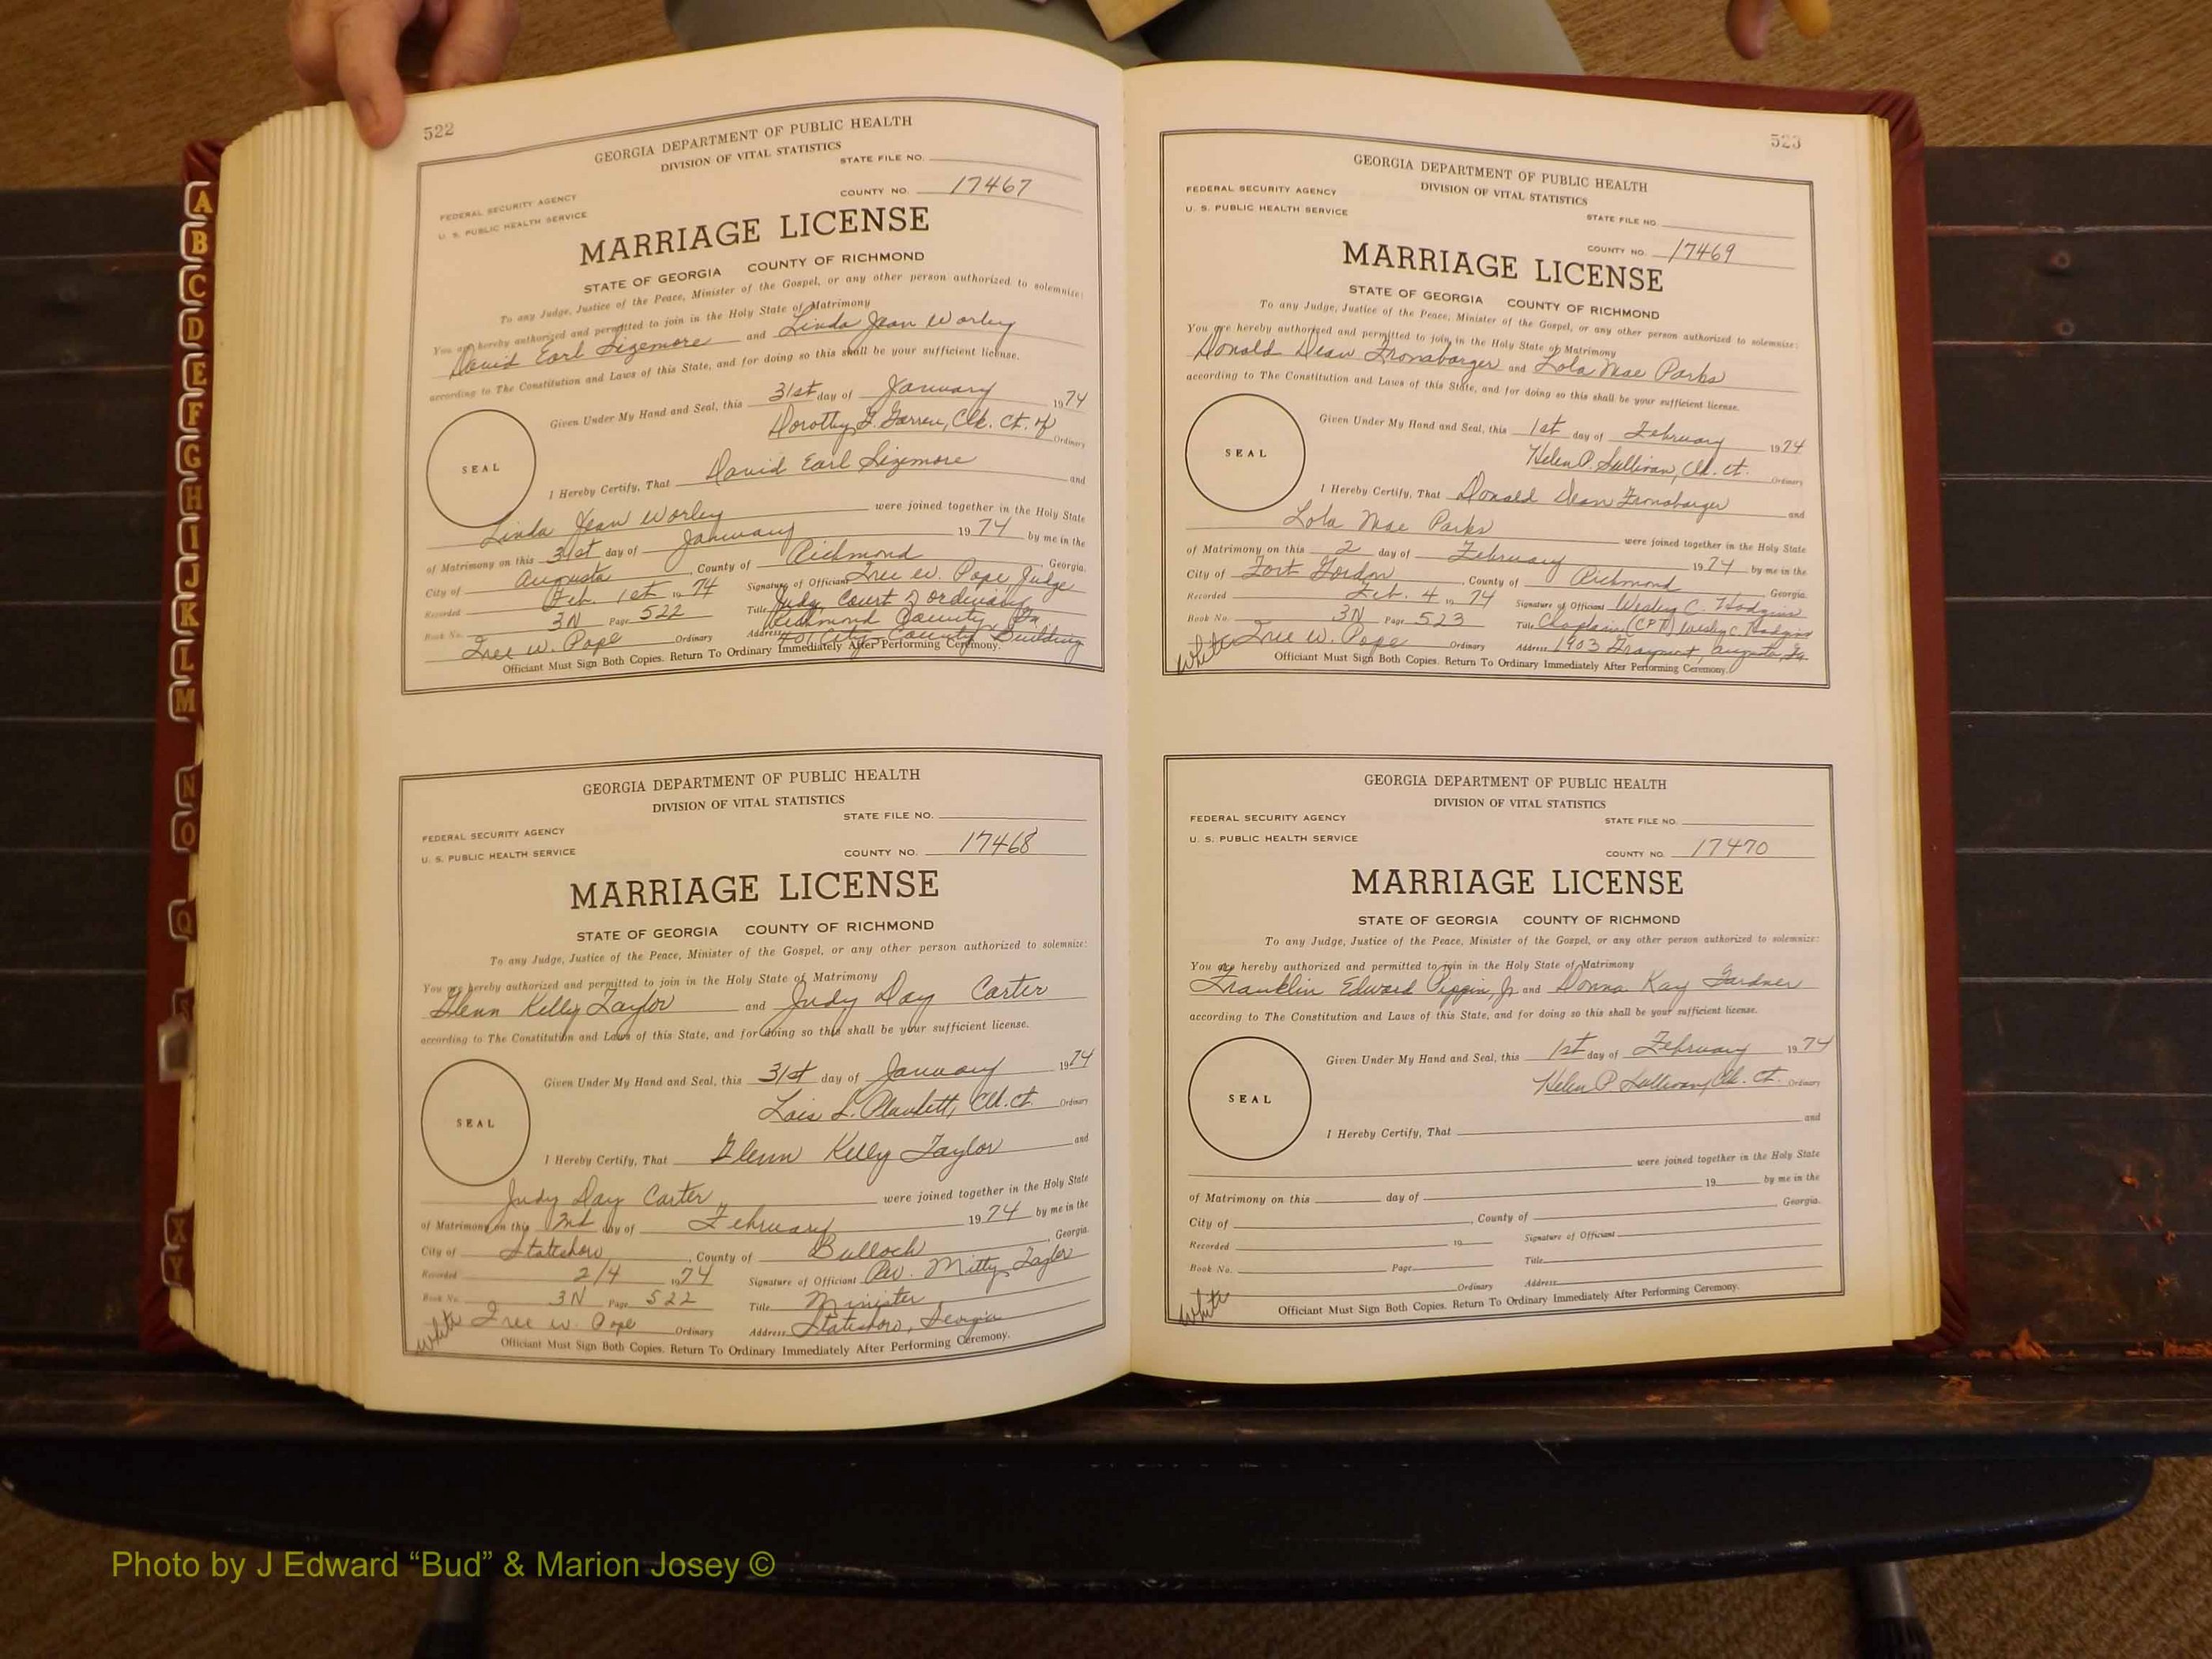 522
GEORGIA DEPARTMENT OF PUBLIC HEALTH
DIVISION OF VITAL STATISTICS
STATE FILE NO.
FEDERAL SECURITY AGENCY
U. S. PUBLIC HEALTH SERVICE
COUNTY NO. 17467
MARRIAGE LICENSE
STATE OF GEORGIA COUNTY OF RICHMOND
To any Judge, Justice of the Peace, Minister of the Gospel, or any other person authorized to solemnize:
You are hereby authorized and permitted to join in the Holy State of Matrimony
David Earl Sizemore and Linda Jean Worley
according to The Constitution and Laws of this State, and for doing so this shall be your sufficient license.
Given Under My Hand and Seal, this 31st day of January 1974
Dorothy G. Garren, Clk. Ct. of Ordinary
SEAL
I Hereby Certify, That David Earl Sizemore and
Linda Jean Worley were joined together in the Holy State
of Matrimony on this 31st day of January 1974 by me in the
City of Augusta, County of Richmond, Georgia.
Recorded Feb. 1st 1974 Signature of Officiant Tree W. Pope Judge
Book No. 3N Page 522 Title Judge, Court of ordinary
Richmond County, Ga
Tree W. Pope Ordinary Address #01 City-County Building
Officiant Must Sign Both Copies. Return To Ordinary Immediately After Performing Ceremony.
GEORGIA DEPARTMENT OF PUBLIC HEALTH
DIVISION OF VITAL STATISTICS
STATE FILE NO.
FEDERAL SECURITY AGENCY
U. S. PUBLIC HEALTH SERVICE
COUNTY NO. 17468
MARRIAGE LICENSE
STATE OF GEORGIA COUNTY OF RICHMOND
To any Judge, Justice of the Peace, Minister of the Gospel, or any other person authorized to solemnize:
You are hereby authorized and permitted to join in the Holy State of Matrimony
Glenn Kelly Taylor and Judy Day Carter
according to The Constitution and Laws of this State, and for doing so this shall be your sufficient license.
Given Under My Hand and Seal, this 31st day of January 1974
Lois L. Plunkett, Clk. Ct. Ordinary
SEAL
I Hereby Certify, That Glenn Kelly Taylor and
Judy Day Carter were joined together in the Holy State
of Matrimony on this 2nd day of February 1974 by me in the
City of Statesboro, County of Bulloch, Georgia.
Recorded 2/4 1974 Signature of Officiant Rev. Mitty Taylor
Book No. 3N Page 522 Title Minister
white Tree W. Pope Ordinary Address Statesboro, Georgia
Officiant Must Sign Both Copies. Return To Ordinary Immediately After Performing Ceremony.
523
GEORGIA DEPARTMENT OF PUBLIC HEALTH
DIVISION OF VITAL STATISTICS
FEDERAL SECURITY AGENCY
U. S. PUBLIC HEALTH SERVICE
STATE FILE NO.
COUNTY NO. 17469
MARRIAGE LICENSE
STATE OF GEORGIA COUNTY OF RICHMOND
To any Judge, Justice of the Peace, Minister of the Gospel, or any other person authorized to solemnize:
You are hereby authorized and permitted to join in the Holy State of Matrimony
Donald Dean Fronabarger and Lola Mae Parks
according to The Constitution and Laws of this State, and for doing so this shall be your sufficient license.
Given Under My Hand and Seal, this 1st day of February 1974
Helen P. Sullivan, Clk. Ct. Ordinary
SEAL
I Hereby Certify, That Donald Dean Fronabarger and
Lola Mae Parks were joined together in the Holy State
of Matrimony on this 2 day of February 1974 by me in the
City of Fort Gordon, County of Richmond, Georgia.
Recorded Feb. 4 1974 Signature of Officiant Wesley C. Hodgins
Book No. 3N Page 523 Title Chaplain (CPT) Wesley C. Hodgins
white Tree W. Pope Ordinary Address 1903 Augusta, Ga
Officiant Must Sign Both Copies. Return To Ordinary Immediately After Performing Ceremony.
GEORGIA DEPARTMENT OF PUBLIC HEALTH
DIVISION OF VITAL STATISTICS
FEDERAL SECURITY AGENCY
U. S. PUBLIC HEALTH SERVICE
STATE FILE NO.
COUNTY NO. 17470
MARRIAGE LICENSE
STATE OF GEORGIA COUNTY OF RICHMOND
To any Judge, Justice of the Peace, Minister of the Gospel, or any other person authorized to solemnize:
You are hereby authorized and permitted to join in the Holy State of Matrimony
Franklin Edward Pippin, Jr and Donna Kay Gardner
according to The Constitution and Laws of this State, and for doing so this shall be your sufficient license.
Given Under My Hand and Seal, this 1st day of February 1974
Helen P Sullivan, Clk. Ct. Ordinary
SEAL
I Hereby Certify, That and
were joined together in the Holy State
of Matrimony on this day of 19 by me in the
City of , County of Georgia.
Recorded 19 Signature of Officiant
Book No. Page Title
white Ordinary Address
Officiant Must Sign Both Copies. Return To Ordinary Immediately After Performing Ceremony.
A
B
C
D
E
F
G
H
I
J
K
L
M
N
O
Q
S
X
Y
Photo by J Edward “Bud” & Marion Josey ©